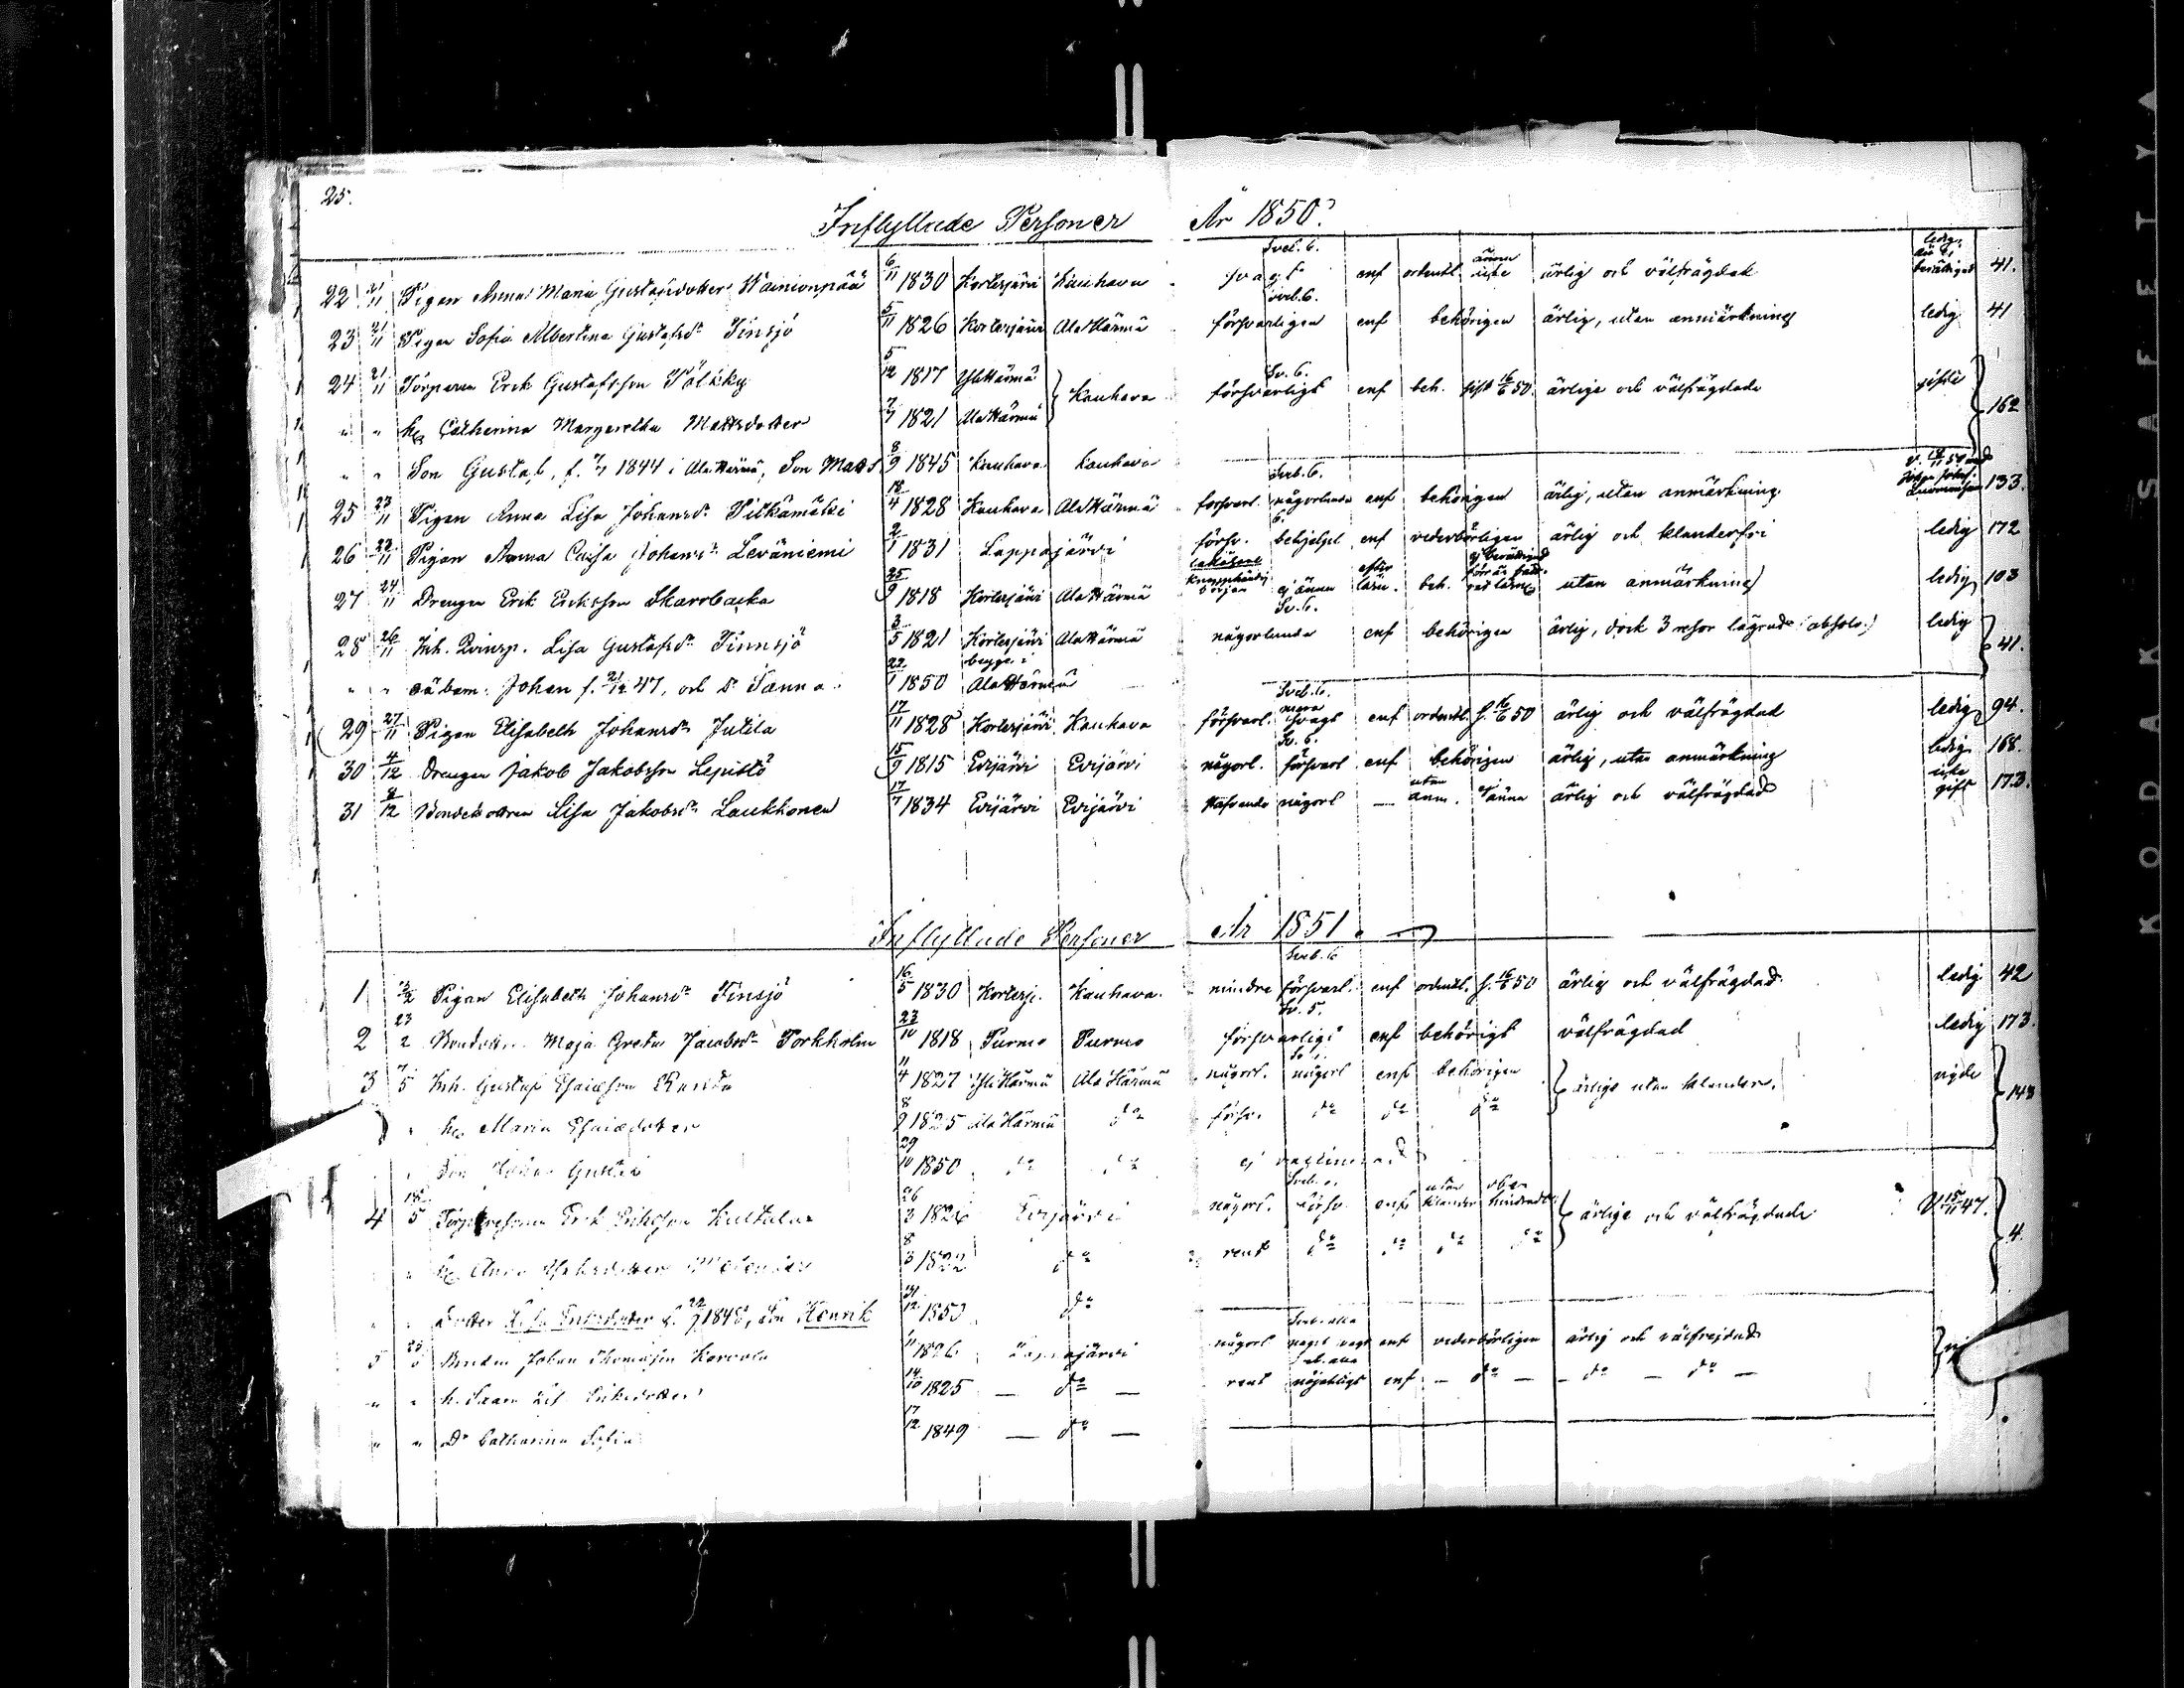 25.
Inflyttade Personer År 1850.
22 21/11 Pigan Anna Maria Gustafsdotter Wainionpää 6/11 1830 Kortesjärvi Kauhava svagt Sveb. 6. enf ordentl. ännu icke ärlig och välfrägdad ledig 41.
23 21/11 Pigan Sofia Albertina Gustafsdr Finsjö 5/11 1826 Kortesjärvi Ala Härmä försvarligen Sveb. 6. enf behörigen ärlig, utan anmärkning ledig 41
24 21/11 Torparen Erik Gustafsson Pölkky 5/12 1817 Yli Härmä Kauhava försvarligt Sv. 6. enf beh. sist 16/6 50. ärlige och välfrägdade gifte 162
" " h. Catharina Margaretha Mattsdotter 7/7 1821 Ala Härmä
" " Son Gustaf, f. 1844 i Ala Härmä, Son Matts 8/9 1845 Kauhava Kauhava
25 23/11 Pigan Anna Lisa Johansdr Pitkämäki 18/4 1828 Kauhava Ala Härmä försvarl. Sveb. 6. någorlunda enf behörigen ärlig, utan anmärkning. 133.
26 23/11 Pigan Anna Cajsa Johansdr Leväniemi 2/1 1831 Lappajärvi försv. behjelpl enf vederbörligen ärlig och klanderfri ledig 172
27 24/11 Drengen Erik Eriksson Skarrbacka 25/9 1818 Kortesjärvi Ala Härmä ej ännu beh. utan anmärkning ledig 103
28 26/11 Inh. Qvinsp. Lisa Gustafsdr Finnsjö 3/5 1821 Kortesjärvi Ala Härmä någorlunda Sv. 6. enf behörigen ärlig, dock 3 resor lägrad (absolv.) ledig 41.
" " oä barn: Johan f. 21/12 47, och dr Sanna 22/1 1850 begge i Ala Härmä
29 27/11 Pigan Elisabeth Johansdr Jutila 17/11 1828 Kortesjärvi Kauhava försvarl. Sveb. 6. svagt enf ordentl. s. 16/6 50 ärlig och välfrägdad ledig 94.
30 4/12 Drengen Jakob Jakobsson Lepistö 15/9 1815 Evijärvi Evijärvi någorl. Sv. 6. försvarl enf behörigen ärlig, utan anmärkning ledig 168.
31 8/12 Bondedottren Lisa Jakobsdr Laukkonen 17/7 1834 Evijärvi Evijärvi stafvande någorl — utan anm. ej ännu ärlig och välfrägdad icke gift 173.
Inflyttade Personer År 1851.
1 2/2 Pigan Elisabeth Johansdr Finsjö 16/5 1830 Kortesj. Kauhava mindre Sveb. 6 försvarl. enf ordentl. s. 16/6 50 ärlig och välfrägdad. ledig 42
2 23/2 Maja Greta Jacobsdr Forkholm 23/10 1818 Purmo Purmo försvarligt Sv. 5. enf behörigt välfrägdad ledig 173.
3 7/5 Inh. Gustaf Esaiasson Ranta 11/4 1827 Yli Härmä Ala Härmä någorl. någorl enf behörigen ärlige utan klander. 143
" h. Maria Esaiædotter 8/9 1825 Ala Härmä do försv. do do do
" Son Johan Gustaf 29/10 1850 do do ej vaccinerad
4 18/5 Erik Eriksson Kultalar 26/3 1826 Evijärvi någorl. försv. enf utan klander ärlige och välfrägdade V. 15/11 47. 4.
" h. Anna 8/3 1822 do rent do do do do
" " Dotter Lisa Eriksdotter f. 22/7 1848, Son Henrik 31/12 1850 do
5 Bonden Johan Thomasson Karvola 1826 Lappajärvi någorl Sveb. alla enf vederbörligen ärlig och välfrejdad
" " h. Eriksdotter 14/10 1825 — do — rent nöjaktigt enf — do — — do — do —
" " Dr Catharina Sofia 17/12 1849 — do —
KODAK SAFETY